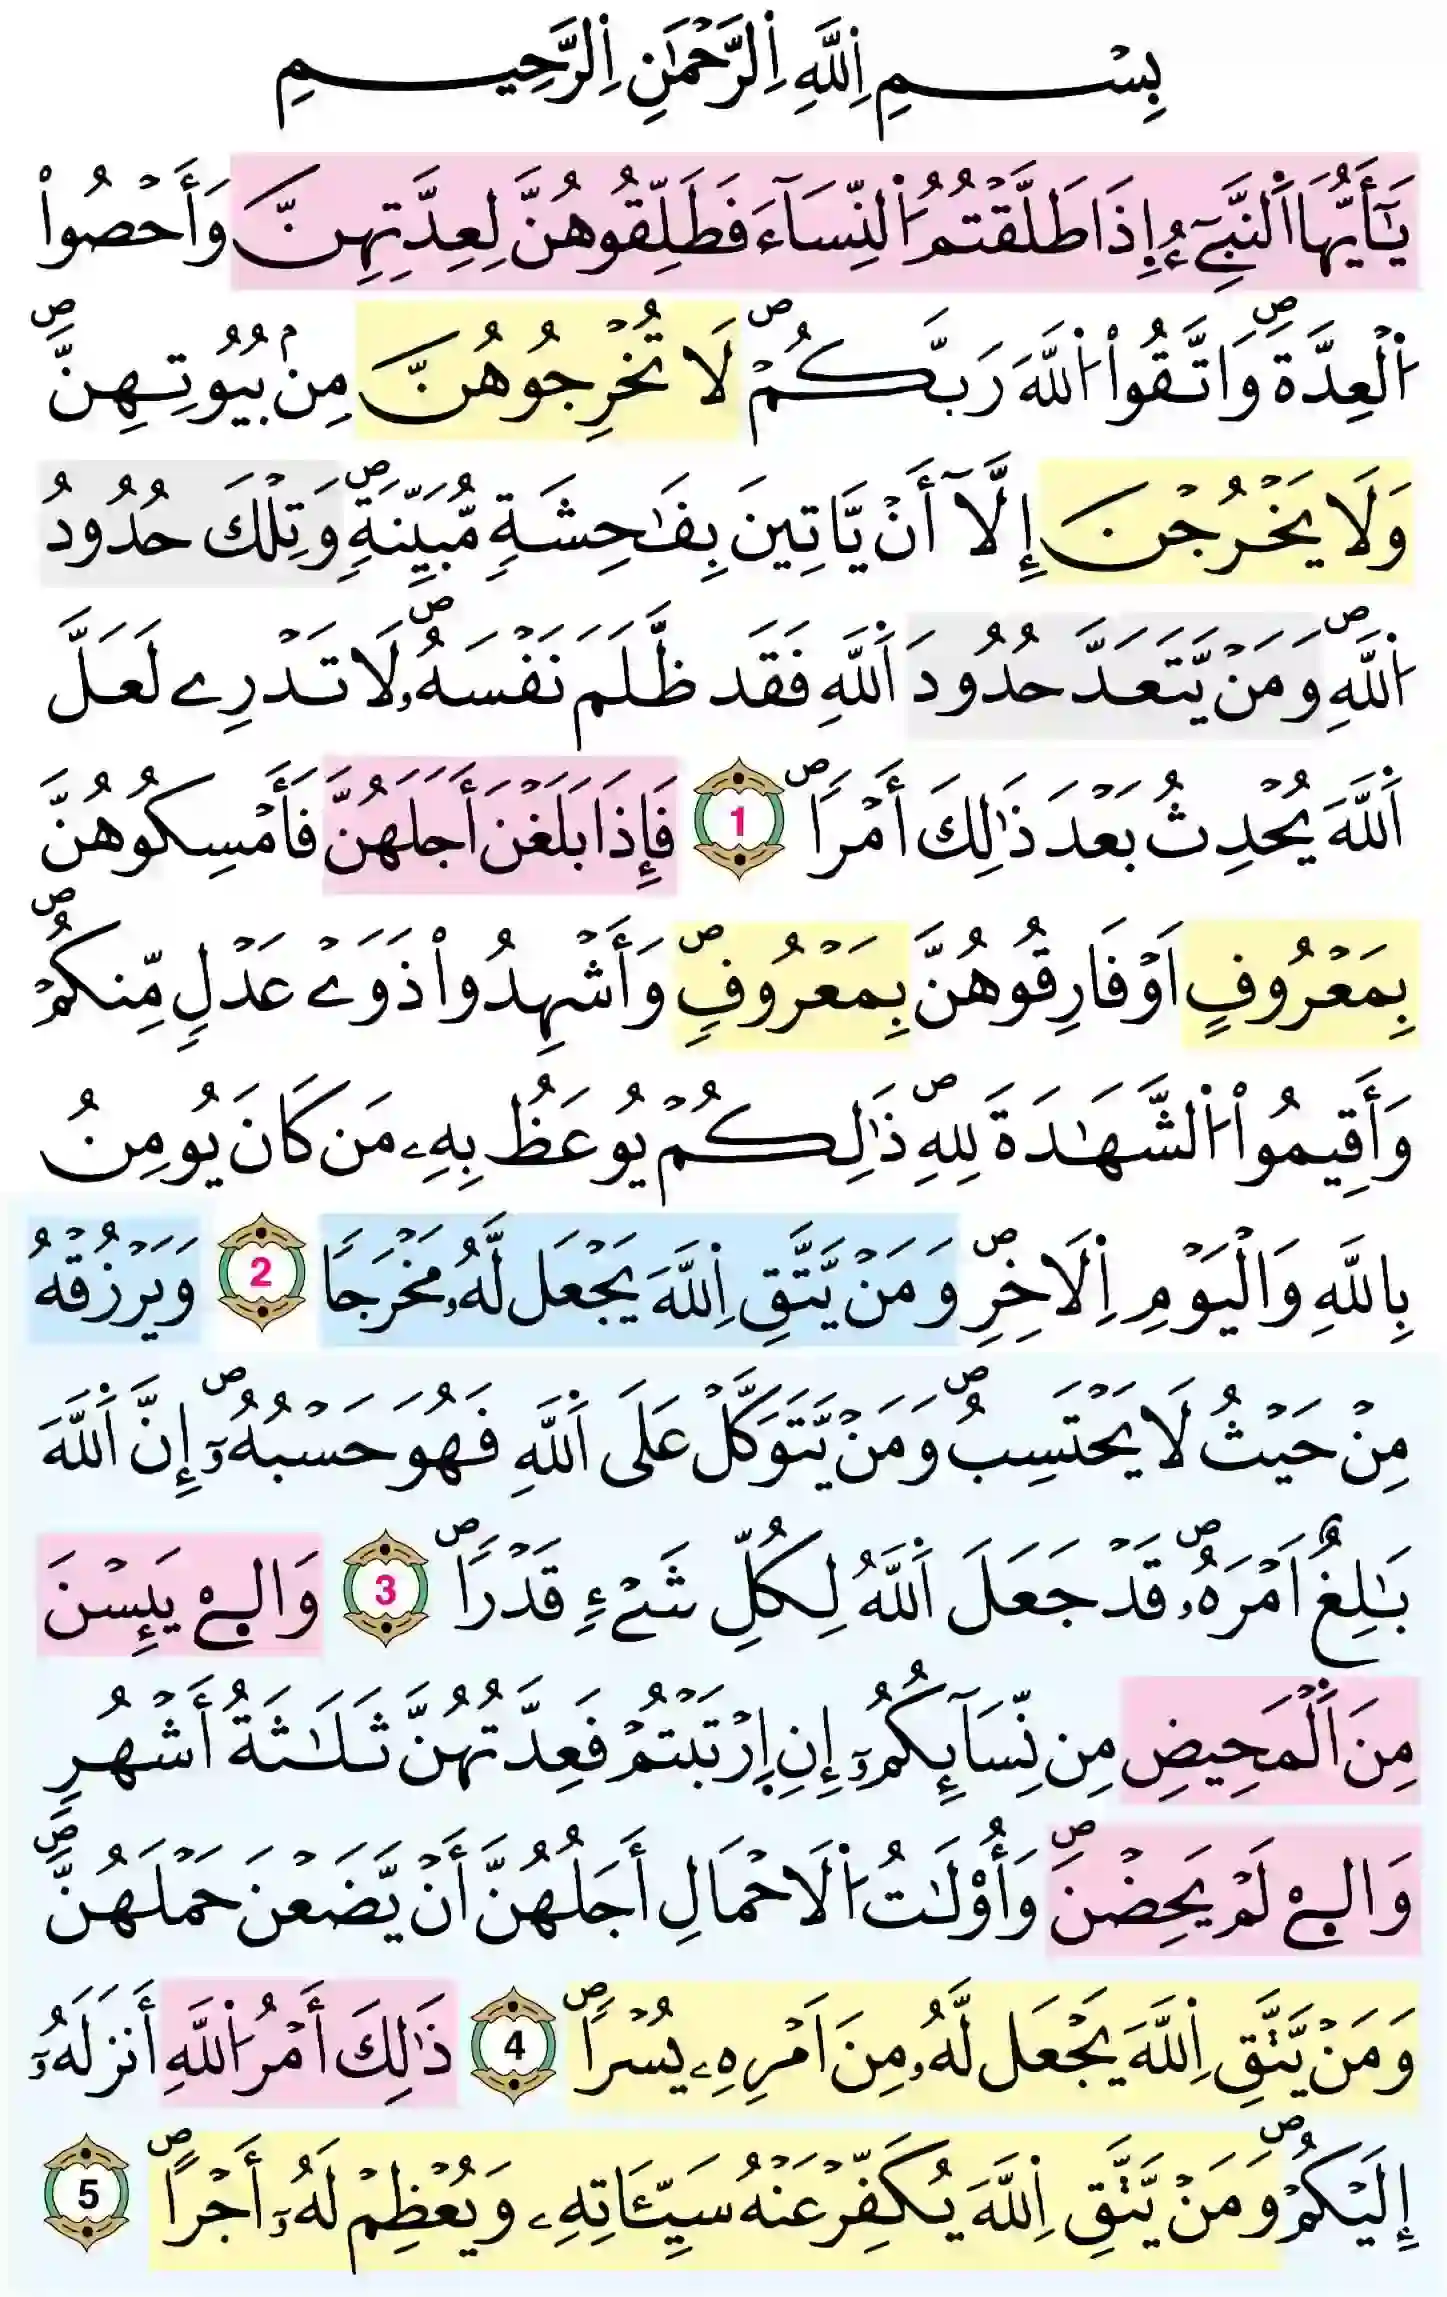 بِسْمِ اِ۬للَّهِ اِ۬لرَّحْمَٰنِ اِ۬لرَّحِيمِ
يَٰٓأَيُّهَا اَ۬لنَّبِيٓءُ اِ۪ذَا طَلَّقْتُمُ اُ۬لنِّسَآءَ فَطَلِّقُوهُنَّ لِعِدَّتِهِنَّ وَأَحْصُواْ
اُ۬لْعِدَّةَۖ وَاتَّقُواْ اُ۬للَّهَ رَبَّكُمْۖ لَا تُخْرِجُوهُنَّ مِنۢ بُيُوتِهِنَّۖ
وَلَا يَخْرُجْنَ إِلَّآ أَنْ يَّاتِينَ بِفَٰحِشَةٍ مُّبَيِّنَةٍۖ وَتِلْكَ حُدُودُ
اُ۬للَّهِۖ وَمَنْ يَّتَعَدَّ حُدُودَ اَ۬للَّهِ فَقَد ظَّلَمَ نَفْسَهُۥۖ لَا تَدْرِے لَعَلَّ
اَ۬للَّهَ يُحْدِثُ بَعْدَ ذَٰلِكَ أَمْراٗۖ 1 فَإِذَا بَلَغْنَ أَجَلَهُنَّ فَأَمْسِكُوهُنَّ
بِمَعْرُوفٍ اَوْ فَارِقُوهُنَّ بِمَعْرُوفٖۖ وَأَشْهِدُواْ ذَوَےْ عَدْلٖ مِّنكُمْۖ
وَأَقِيمُواْ اُ۬لشَّهَٰدَةَ لِلهِۖ ذَٰلِكُمْ يُوعَظُ بِهِۦ مَن كَانَ يُومِنُ
بِاللَّهِ وَالْيَوْمِ اِ۬لَاخِرِۖ وَمَنْ يَّتَّقِ اِ۬للَّهَ يَجْعَل لَّهُۥ مَخْرَجاٗ 2 وَيَرْزُقْهُ
مِنْ حَيْثُ لَا يَحْتَسِبُۖ وَمَنْ يَّتَوَكَّلْ عَلَى اَ۬للَّهِ فَهُوَ حَسْبُهُۥٓۖ إِنَّ اَ۬للَّهَ
بَٰلِغٌ اَمْرَهُۥۖ قَدْ جَعَلَ اَ۬للَّهُ لِكُلِّ شَےْءٖ قَدْراٗۖ 3 وَالَٰٓـِٔے يَئِسْنَ
مِنَ اَ۬لْمَحِيضِ مِن نِّسَآئِكُمُۥٓ إِنِ اِ۪رْتَبْتُمْ فَعِدَّتُهُنَّ ثَلَٰثَةُ أَشْهُرٖ
وَالَٰٓـِٔے لَمْ يَحِضْنَۖ وَأُوْلَٰتُ اُ۬لَاحْمَالِ أَجَلُهُنَّ أَنْ يَّضَعْنَ حَمْلَهُنَّۖ
وَمَنْ يَّتَّقِ اِ۬للَّهَ يَجْعَل لَّهُۥ مِنَ اَمْرِهِۦ يُسْراٗۖ 4 ذَٰلِكَ أَمْرُ اُ۬للَّهِ أَنزَلَهُۥٓ
إِلَيْكُمْۖ وَمَنْ يَّتَّقِ اِ۬للَّهَ يُكَفِّرْ عَنْهُ سَيِّـَٔاتِهِۦ وَيُعْظِمْ لَهُۥٓ أَجْراًۖ 5